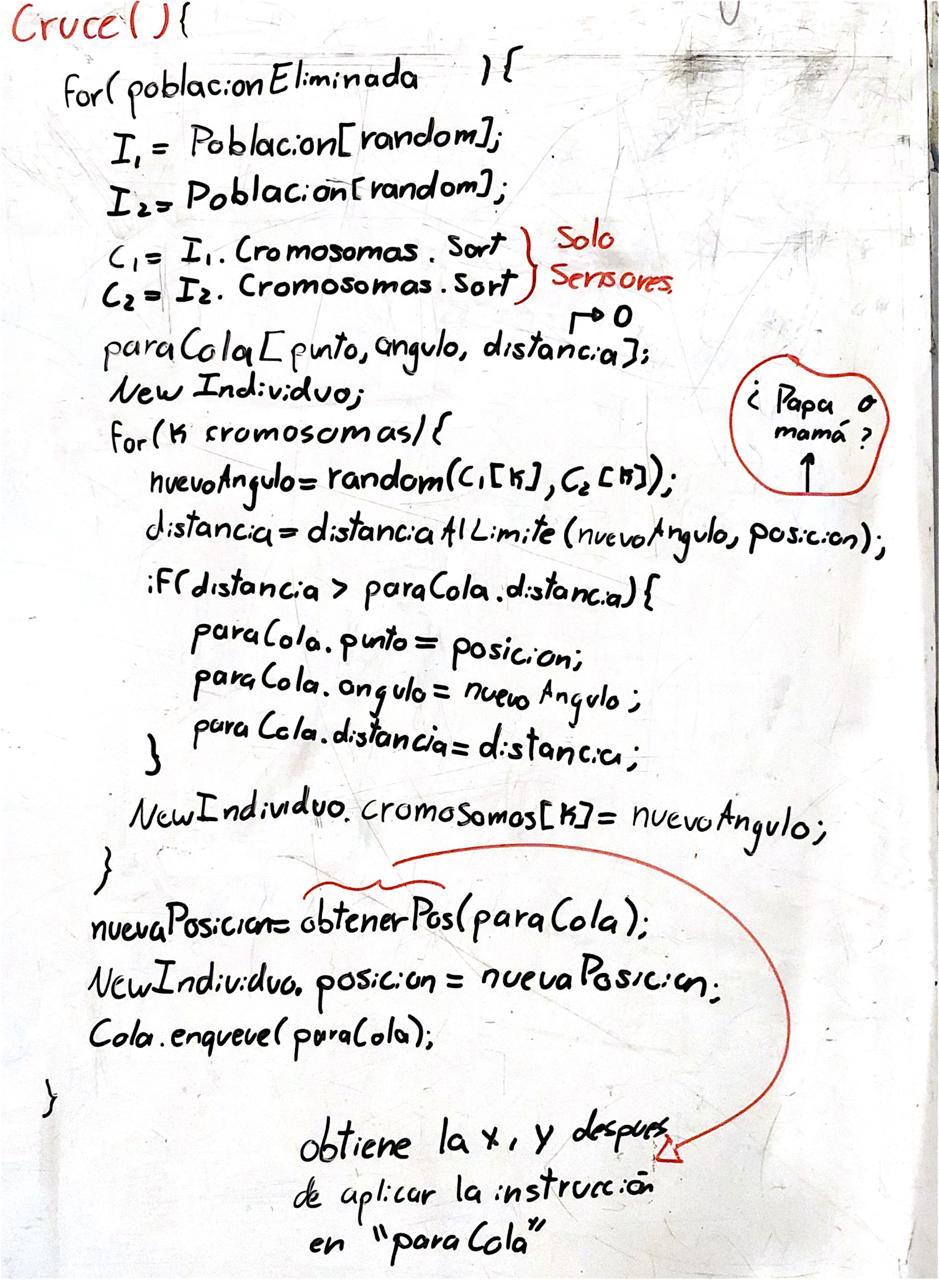 Cruce(){
for(poblacionEliminada ){
I₁ = Poblacion[random];
I₂ = Poblacion[random];
C₁ = I₁. Cromosomas . Sort
C₂ = I₂. Cromosomas . Sort
Solo
Sensores.
→ 0
paraCola [punto, angulo, distancia];
New Individuo;
for(K cromosomas){
¿ Papa o
mamá ?
nuevoAngulo = random(C₁[K], C₂[K]);
distancia = distanciaAlLimite (nuevoAngulo, posicion);
if(distancia > paraCola.distancia){
paraCola.punto = posicion;
paraCola.angulo = nuevoAngulo;
paraCola.distancia = distancia;
}
NewIndividuo.cromosomos[K] = nuevoAngulo;
}
nuevaPosicion = obtenerPos(paraCola);
NewIndividuo.posicion = nuevaPosicion;
Cola.enqueue(paraCola);
}
obtiene la x, y despues
de aplicar la instrucción
en "paraCola"